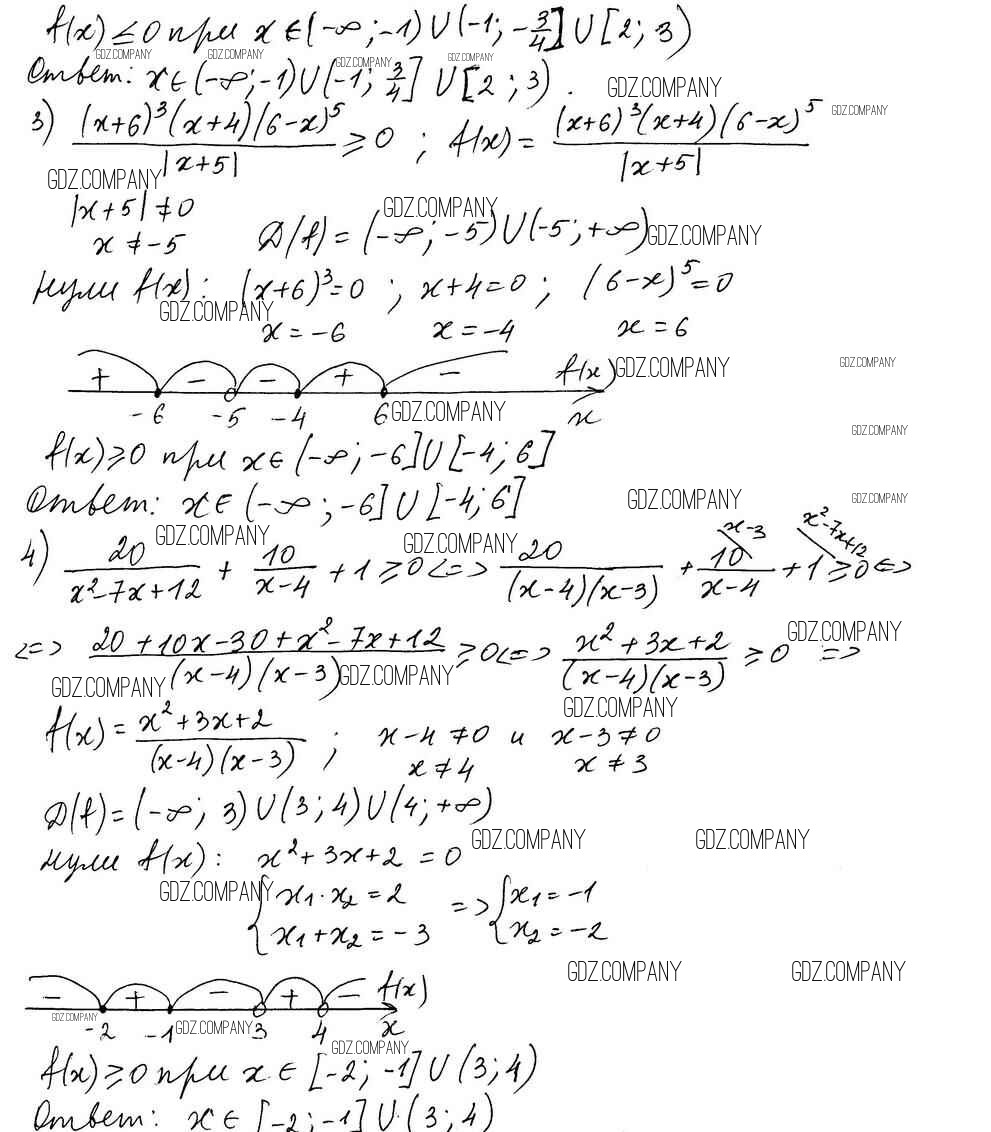 f(x) ≤ 0 при x ∈ (-∞; -1) ∪ (-1; -3/4] ∪ [2; 3)
GDZ.COMPANY GDZ.COMPANY GDZ.COMPANY GDZ.COMPANY
Ответ: x ∈ (-∞; -1) ∪ (-1; 3/4] ∪ [2; 3). GDZ.COMPANY
3) (x+6)³(x+4)(6-x)⁵ / |x+5| ≥ 0 ; f(x) = (x+6)³(x+4)(6-x)⁵ / |x+5| GDZ.COMPANY
GDZ.COMPANY
|x+5| ≠ 0 GDZ.COMPANY
x ≠ -5 D(f) = (-∞; -5) ∪ (-5; +∞) GDZ.COMPANY
Нули f(x): (x+6)³ = 0 ; x+4 = 0 ; (6-x)⁵ = 0
GDZ.COMPANY
x = -6 x = -4 x = 6
+ - - + - f(x) GDZ.COMPANY GDZ.COMPANY
-6 -5 -4 6 GDZ.COMPANY x
GDZ.COMPANY
f(x) ≥ 0 при x ∈ (-∞; -6] ∪ [-4; 6]
Ответ: x ∈ (-∞; -6] ∪ [-4; 6] GDZ.COMPANY GDZ.COMPANY
GDZ.COMPANY GDZ.COMPANY
4) 20 / x²-7x+12 + 10 / x-4 + 1 ≥ 0 <=> 20 / (x-4)(x-3) + 10 \x-3 / x-4 + 1 \x²-7x+12 ≥ 0 <=>
<=> 20+10x-30+x²-7x+12 / (x-4)(x-3) ≥ 0 <=> x²+3x+2 / (x-4)(x-3) ≥ 0 => GDZ.COMPANY
GDZ.COMPANY GDZ.COMPANY GDZ.COMPANY
f(x) = x²+3x+2 / (x-4)(x-3) ; x-4 ≠ 0 и x-3 ≠ 0
x ≠ 4 x ≠ 3
D(f) = (-∞; 3) ∪ (3; 4) ∪ (4; +∞)
GDZ.COMPANY GDZ.COMPANY
Нули f(x): x²+3x+2 = 0
GDZ.COMPANY
{ x₁·x₂ = 2 => { x₁ = -1
x₁+x₂ = -3 x₂ = -2
GDZ.COMPANY GDZ.COMPANY
- + - + - f(x)
GDZ.COMPANY -2 -1 GDZ.COMPANY 3 4 x
GDZ.COMPANY
f(x) ≥ 0 при x ∈ [-2; -1] ∪ (3; 4)
Ответ: x ∈ [-2; -1] ∪ (3; 4)